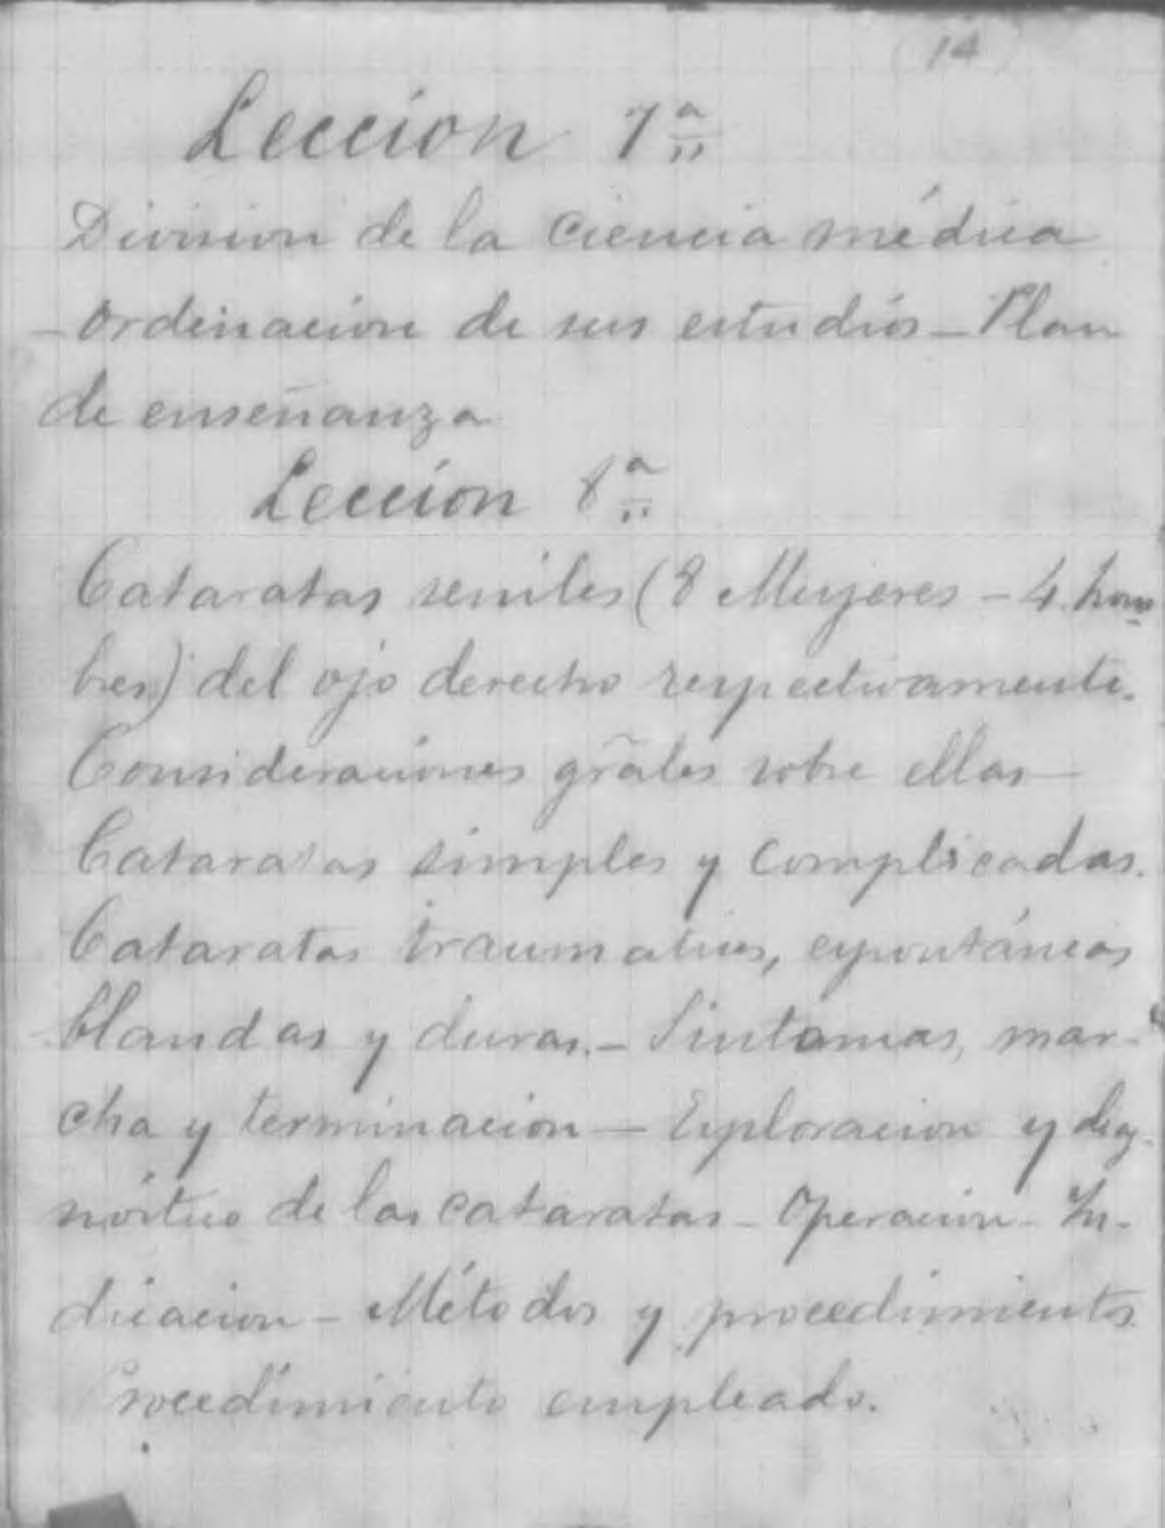 14
Leccion 7ª
Division de la Ciencia médica
- Ordenacion de sus estudios - Plan
de enseñanza
Leccion 8ª
Cataratas seniles (8 Mujeres - 4 hom
bres) del ojo derecho respectivamente.
Consideraciones grãles sobre ellas -
Cataratas simples y complicadas.
Cataratas traumaticas, espontáneas
blandas y duras. - Sintomas, mar-
cha y terminacion - Exploracion y diag-
nóstico de las cataratas - Operacion - In-
dicacion - Métodos y procedimientos
Procedimiento empleado.